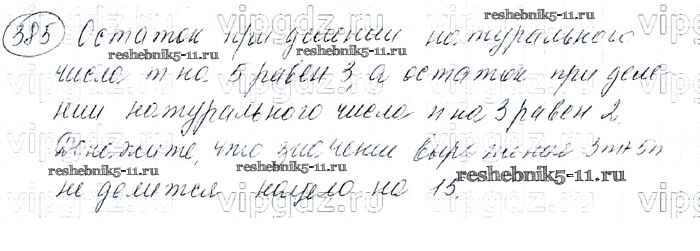 385 Остаток при делении натурального
числа m на 5 равен 3, а остаток при деле-
нии натурального числа n на 3 равен 2.
Докажите, что значение выражения 3m+5n
не делится нацело на 15.
reshebnik5-11.ru
reshebnik5-11.ru
reshebnik5-11.ru
reshebnik5-11.ru
reshebnik5-11.ru
reshebnik5-11.ru
vipgdz.com